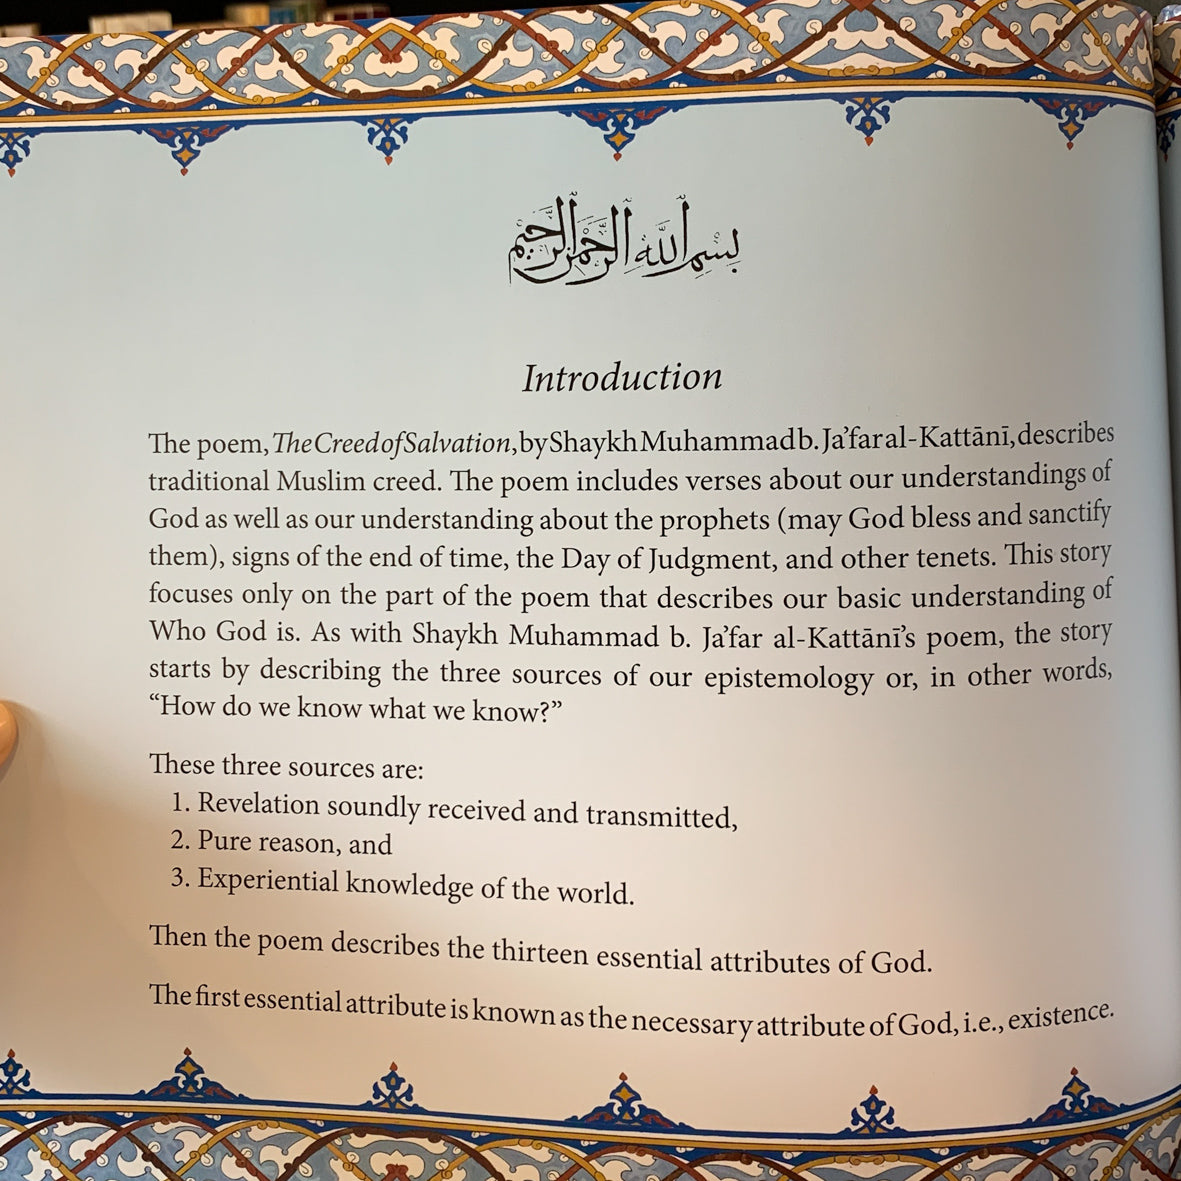 بِسْمِ اللَّهِ الرَّحْمَنِ الرَّحِيمِ
Introduction
The poem, The Creed of Salvation, by Shaykh Muhammad b. Ja’far al-Kattānī, describes
traditional Muslim creed. The poem includes verses about our understandings of
God as well as our understanding about the prophets (may God bless and sanctify
them), signs of the end of time, the Day of Judgment, and other tenets. This story
focuses only on the part of the poem that describes our basic understanding of
Who God is. As with Shaykh Muhammad b. Ja’far al-Kattānī’s poem, the story
starts by describing the three sources of our epistemology or, in other words,
“How do we know what we know?”
These three sources are:
1. Revelation soundly received and transmitted,
2. Pure reason, and
3. Experiential knowledge of the world.
Then the poem describes the thirteen essential attributes of God.
The first essential attribute is known as the necessary attribute of God, i.e., existence.